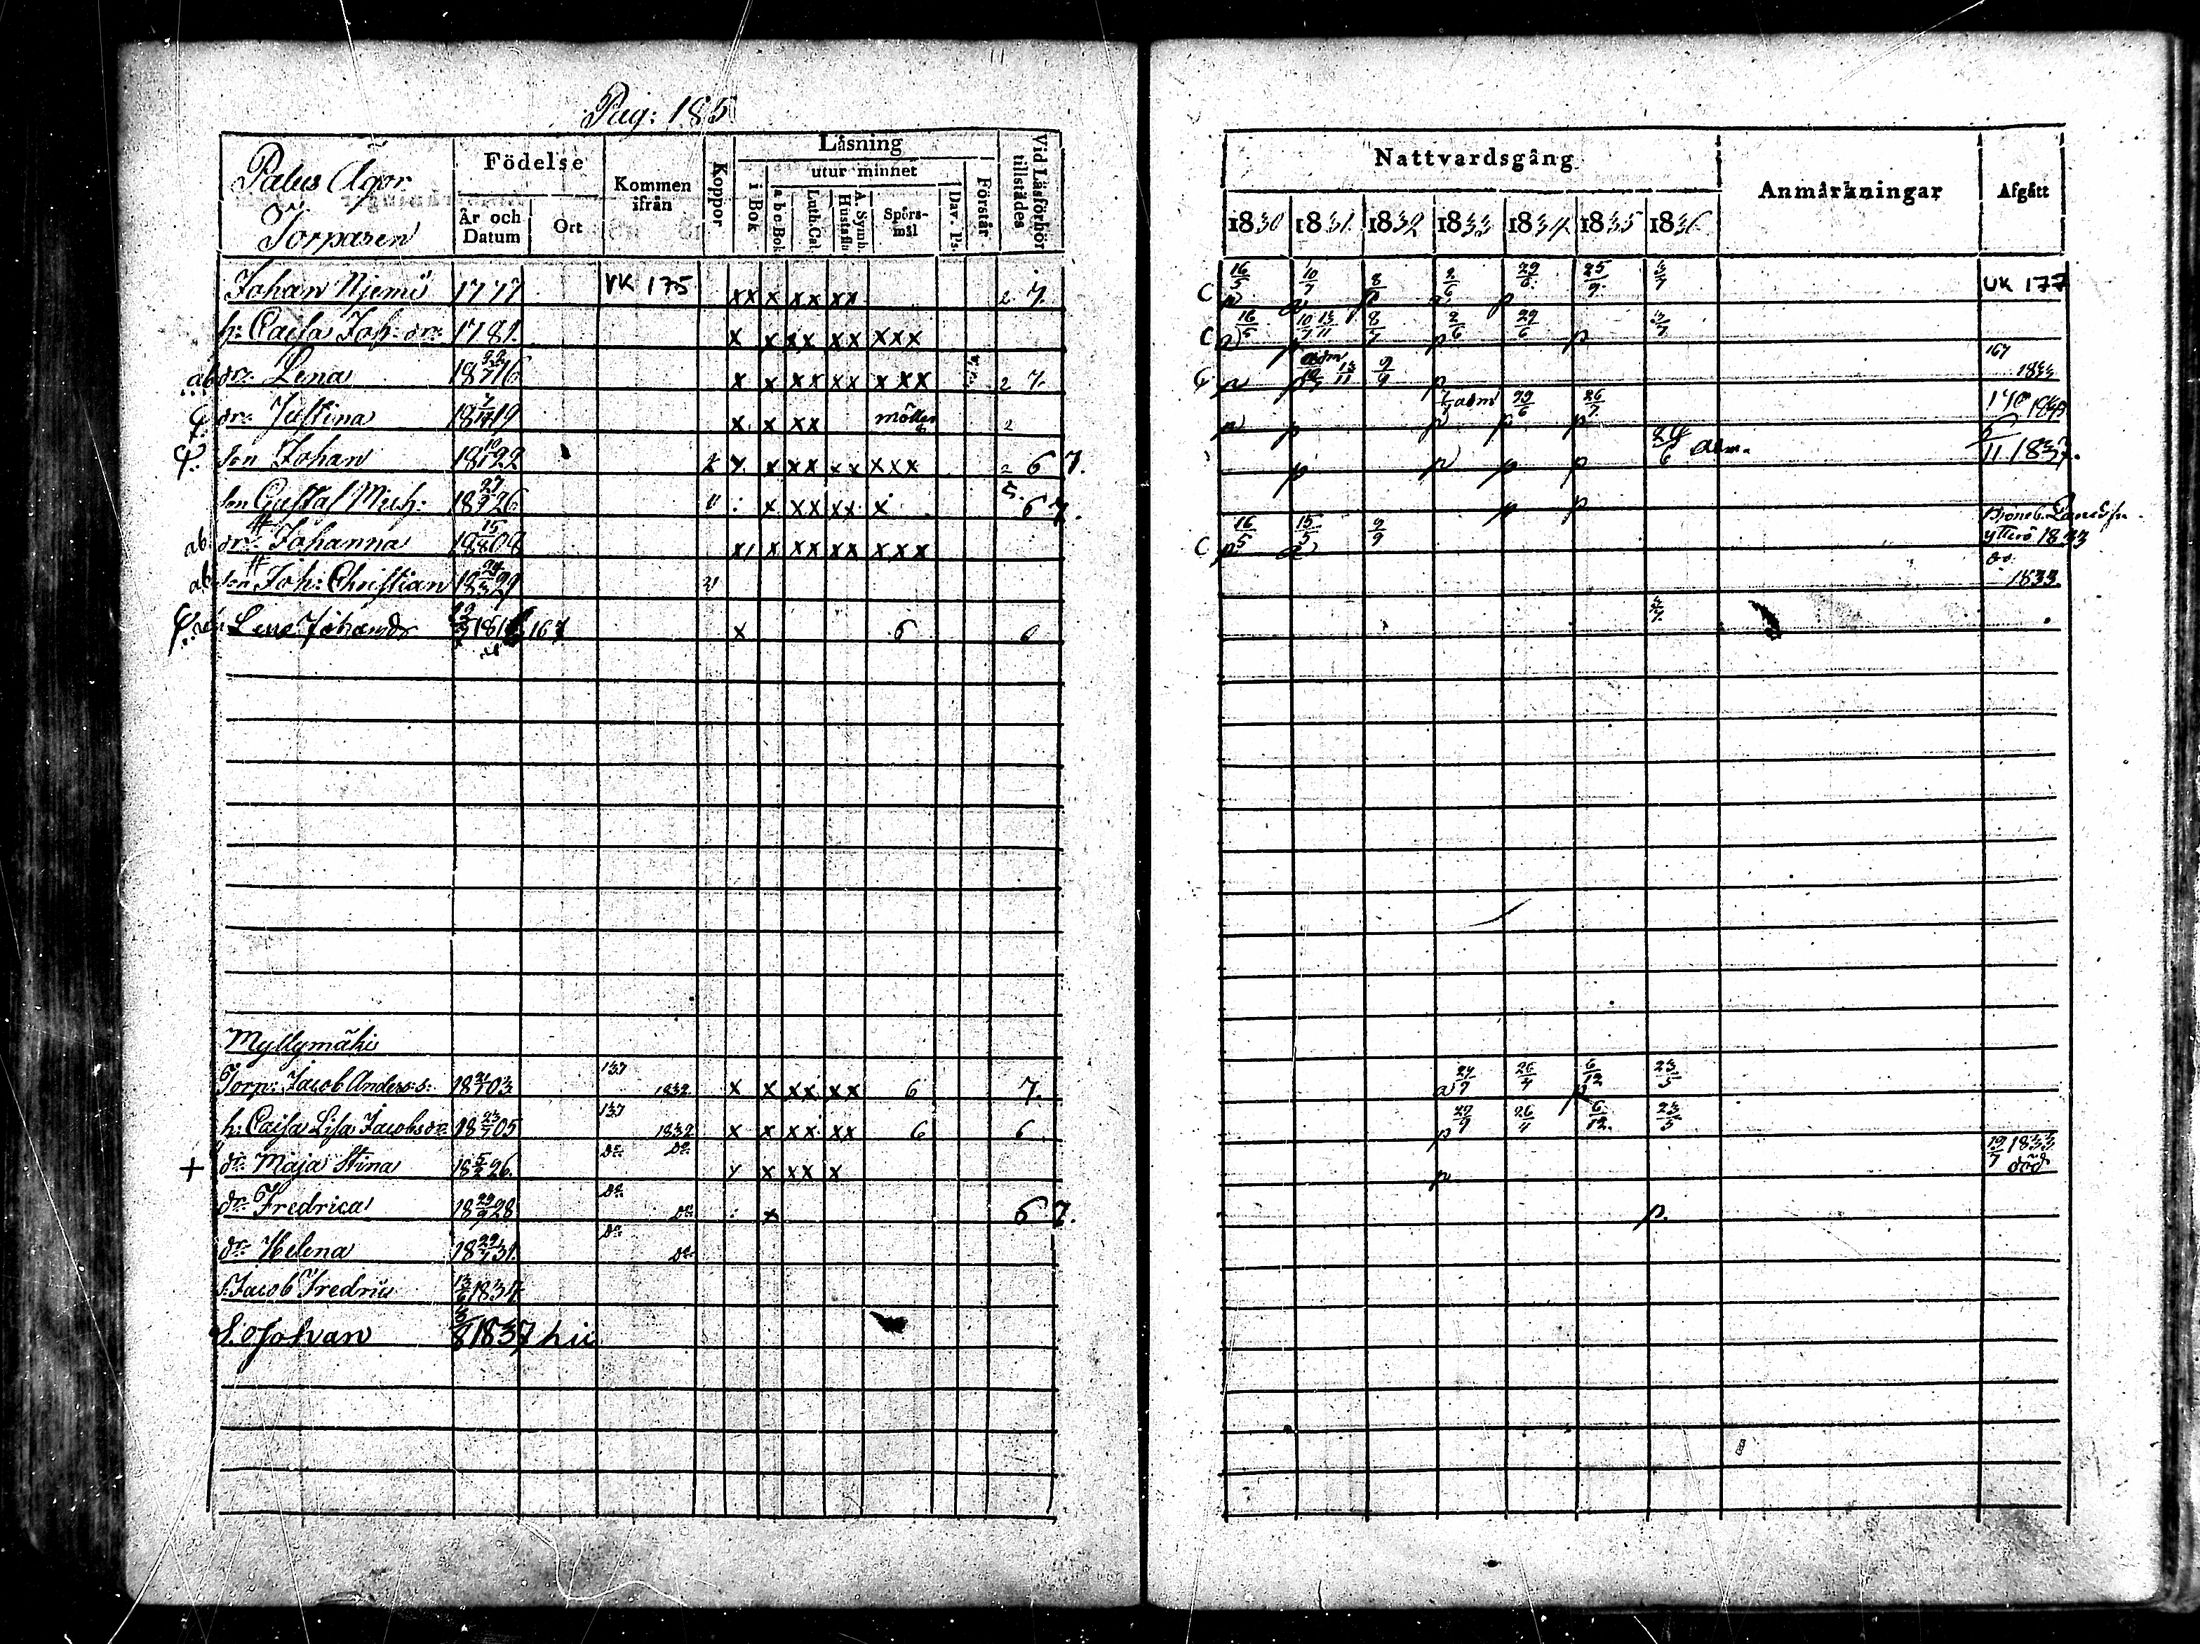 Pag: 185
Palus Ägor
Torparen
Födelse
År och Datum
Ort
Kommen ifrån
Koppor
Läsning
i Bok
utur minnet
a b c-Bok
Luth. Cat.
A. Symb. Hustafla
Spörsmål
Dav. Ps.
Förstår
Vid Läsförhör tillstädes
Nattvardsgång
1830 1831 1832 1833 1834 1835 1836
Anmärkningar
Afgått
Johan Njemi 1777 VK 175 xx x xx xx 2 7. C 16/5 10/7 8/7 2/6 29/6 25/7 3/7 UK 177
h: Caisa Joh: dr: 1781. x x xx xx xxx C 16/5 10/7 13/11 8/7 2/6 29/6 p 3/7
ab dr: Lena 18 22/7 16 x x xx xx x xx 2 7. adm 13/11 9/9 p 167 1833
dr: Justina 18 19 x x xx 2 p p adm 29/6 26/7 170
son Johan 18 10/1 22 x x xx xx xxx 2 6 7. p p p p 24/6 adm. 5/11 1837.
son Gustaf Mich: 18 27/9 26 x xx xx x 5. 6 7. p p
ab dr: Johanna 18 15/8 08 x x xx xx xxx C 16/5 15/5 9/9 1833
ab son Joh: Christian 18 29 do 1833.
Lena Johansdr 167 x 6 6 3/7
Myllymäki
Torp: Jacob Anders: s: 18 03 137 1832. x x xx xx 6 7. 29/9 26/4 6/12 23/5
h: Caisa Lisa Jacobsdr: 18 23/7 05 137 1832 x x xx xx 6 6 29/9 26/4 6/12 23/5
+ dr: Maja Stina 18 5/2 26. Do Do x x xx x p 19/7 1833 död
dr: Fredrica 18 29/9 28 Do Do x 6 7. p.
dr: Helena 18 31. Do Do
s: Jacob Fredric 13/6 1834
S. Johan 3/8 1837 hic